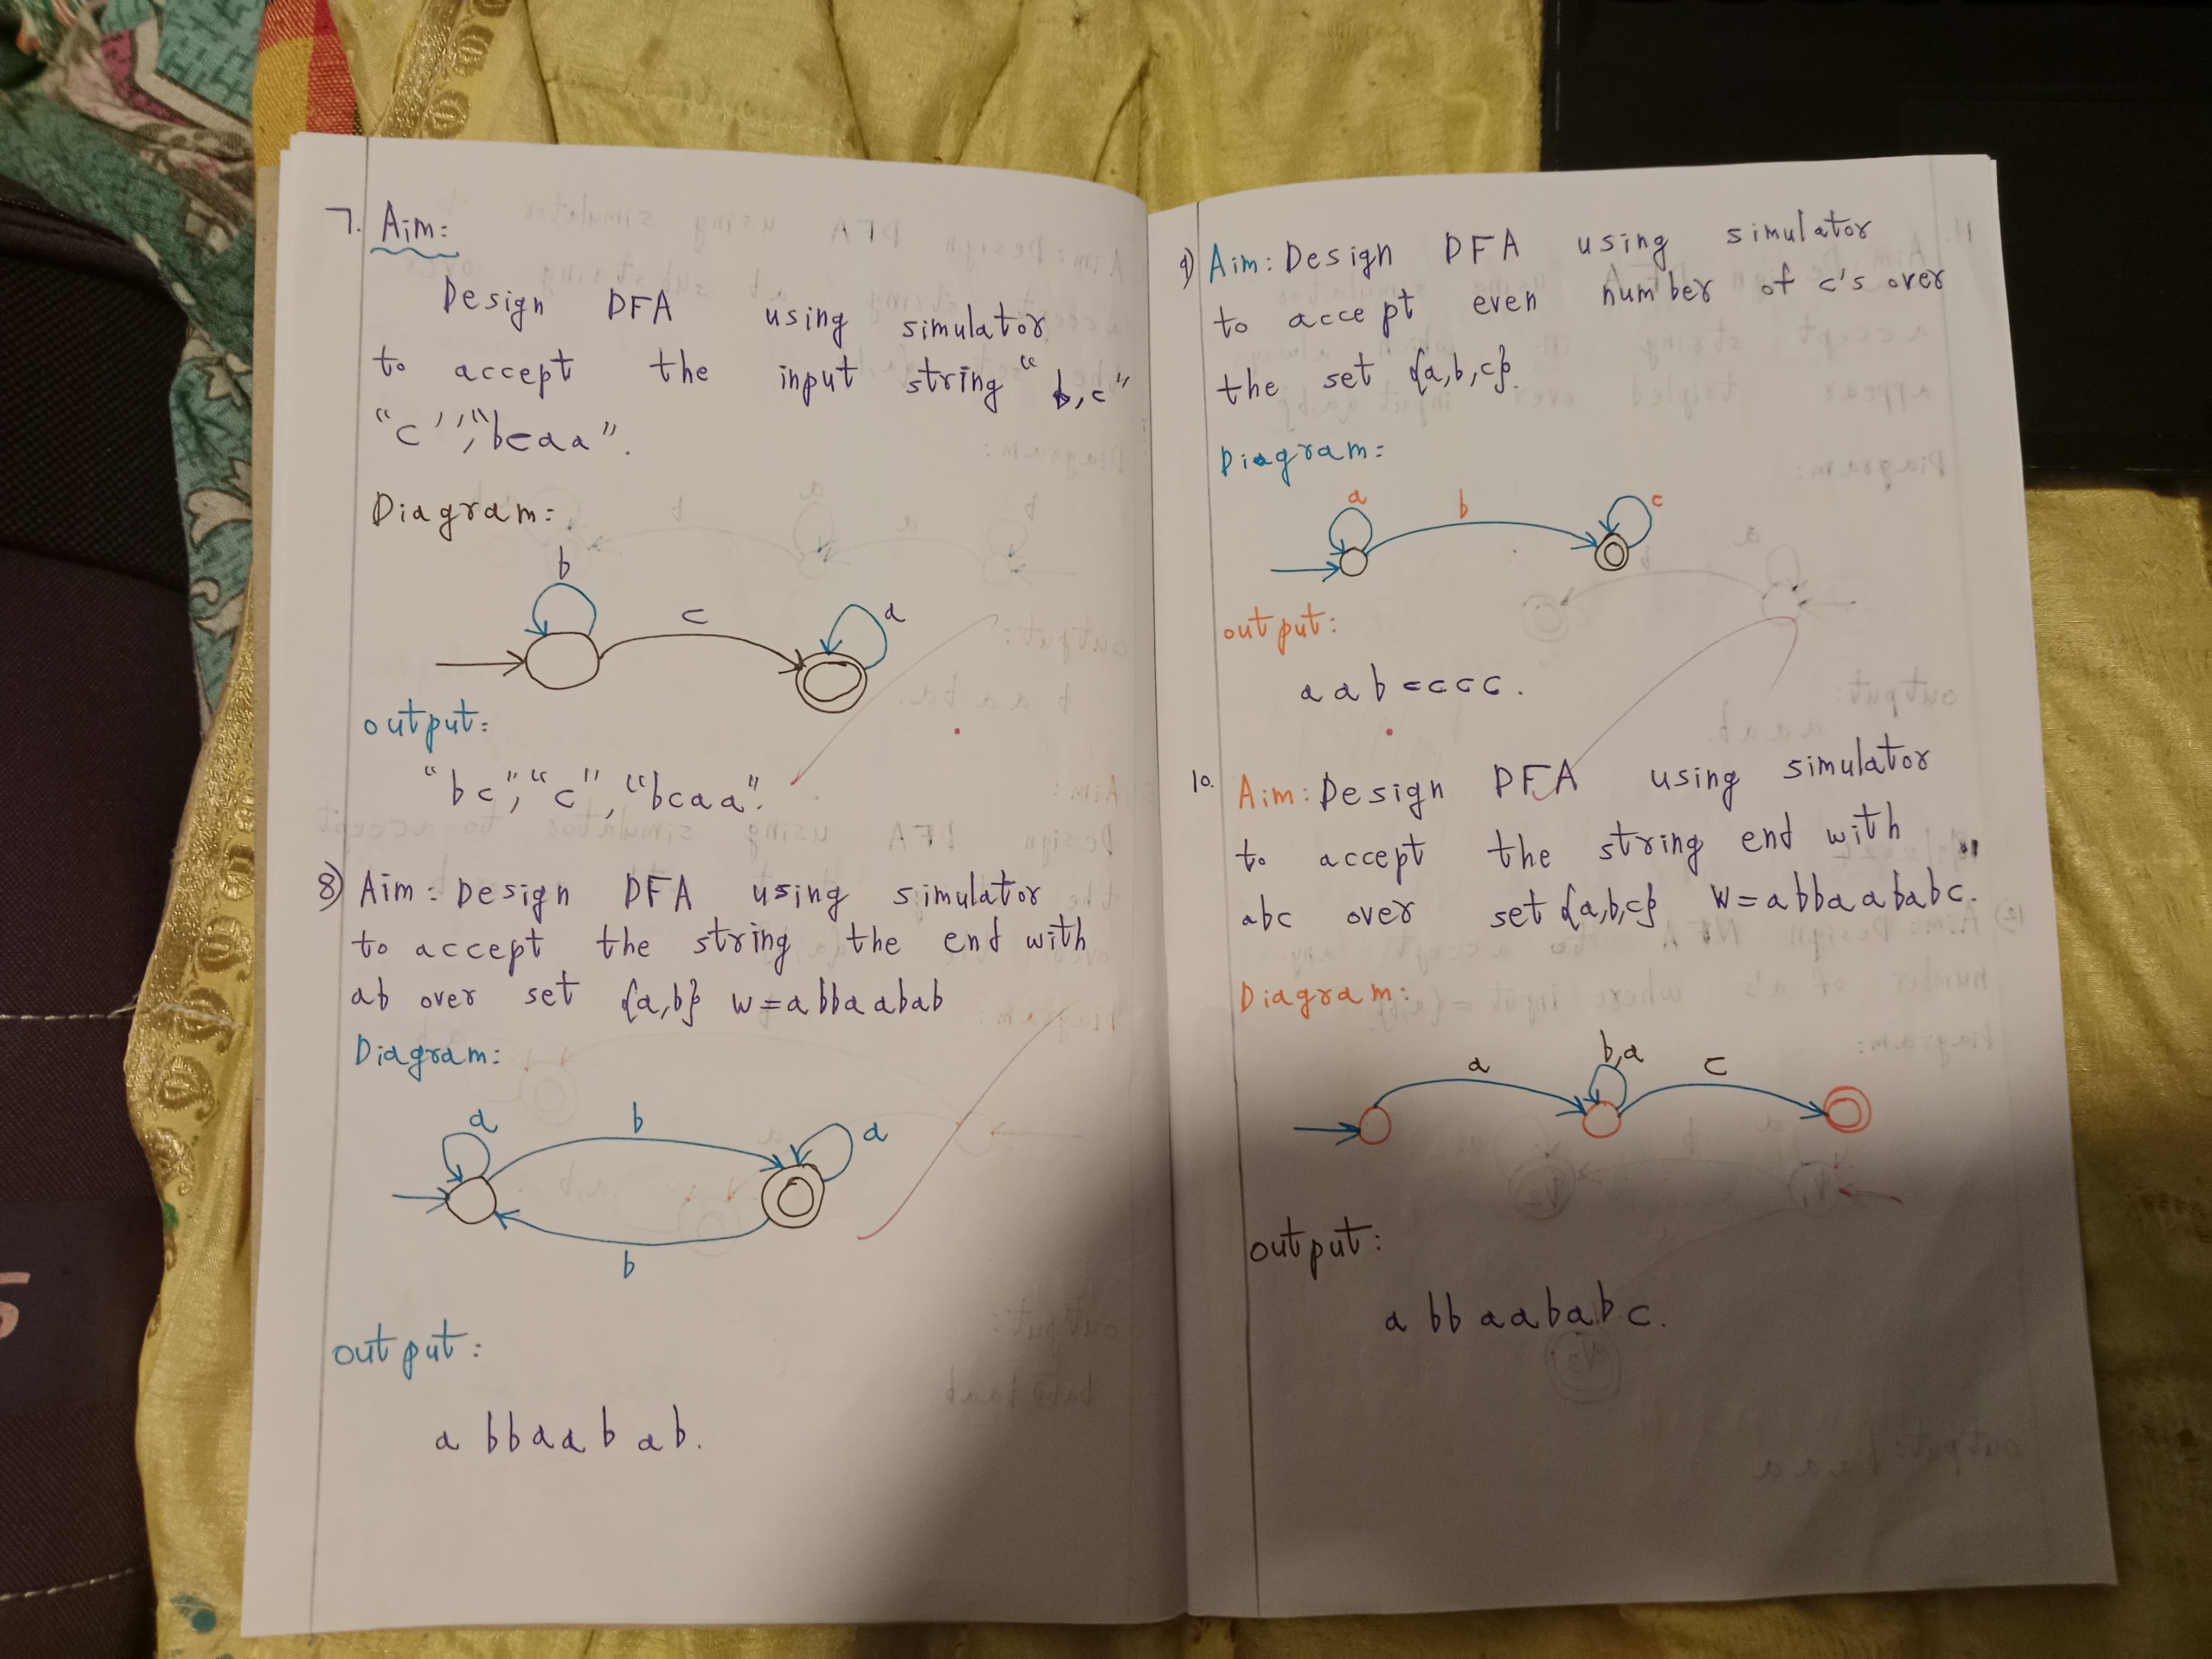 7. Aim:
Design DFA using simulator
to accept the input string "b,c"
"c","bcaa".
Diagram:
b
c
a
output:
"bc","c","bcaa".
8) Aim: Design DFA using simulator
to accept the string the end with
ab over set {a,b} w=abbaabab
Diagram:
a b a
b
output:
abbaabab.
9) Aim: Design DFA using simulator
to accept even number of c's over
the set {a,b,c}.
Diagram:
a b c
output:
aabcccc.
10. Aim: Design DFA using simulator
to accept the string end with
abc over set {a,b,c} W=abbaababc.
Diagram:
a b,a c
output:
abbaababc.